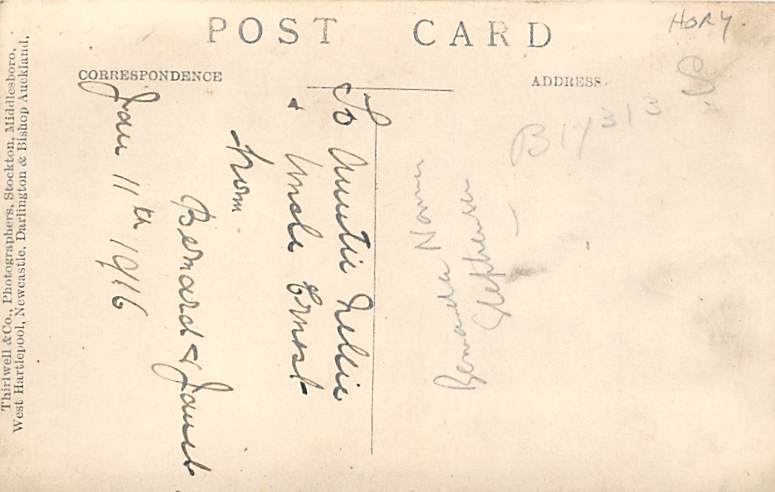 POST CARD
HORY.
CORRESPONDENCE
ADDRESS.
S.
B17313
To Auntie Nellie
& Uncle Ernest
from
Bernard & Janet
Jan 11th 1916
Stephenson
Thirlwell & Co., Photographers, Stockton, Middlesboro,
West Hartlepool, Newcastle, Darlington & Bishop Auckland.